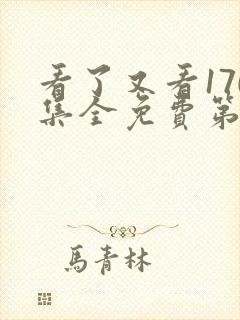 看了又看170
集全免费第
馬青林